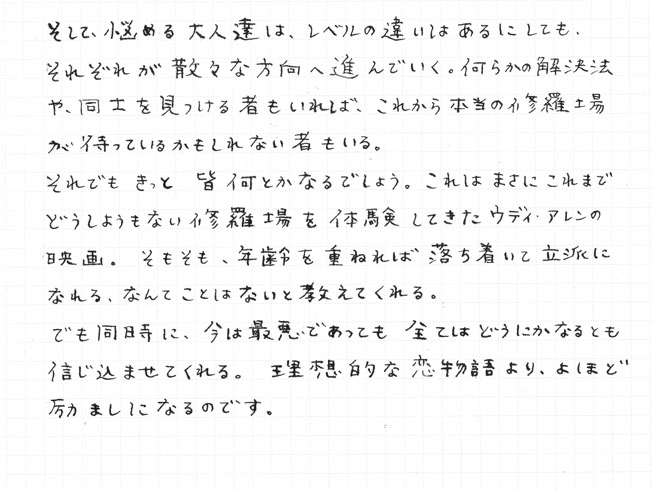 そして、悩める大人達は、レベルの違いはあるにしても、
それぞれが散々な方向へ進んでいく。何らかの解決法
や、同士を見つける者もいれば、これから本当の修羅場
が待っているかもしれない者もいる。
それでもきっと皆何とかなるでしょう。これはまさにこれまで
どうしようもない修羅場を体験してきたウディ・アレンの
映画。そもそも、年齢を重ねれば落ち着いて立派に
なれる、なんてことはないと教えてくれる。
でも同時に、今は最悪であっても全てはどうにかなるとも
信じ込ませてくれる。理想的な恋物語より、よほど
励ましになるのです。